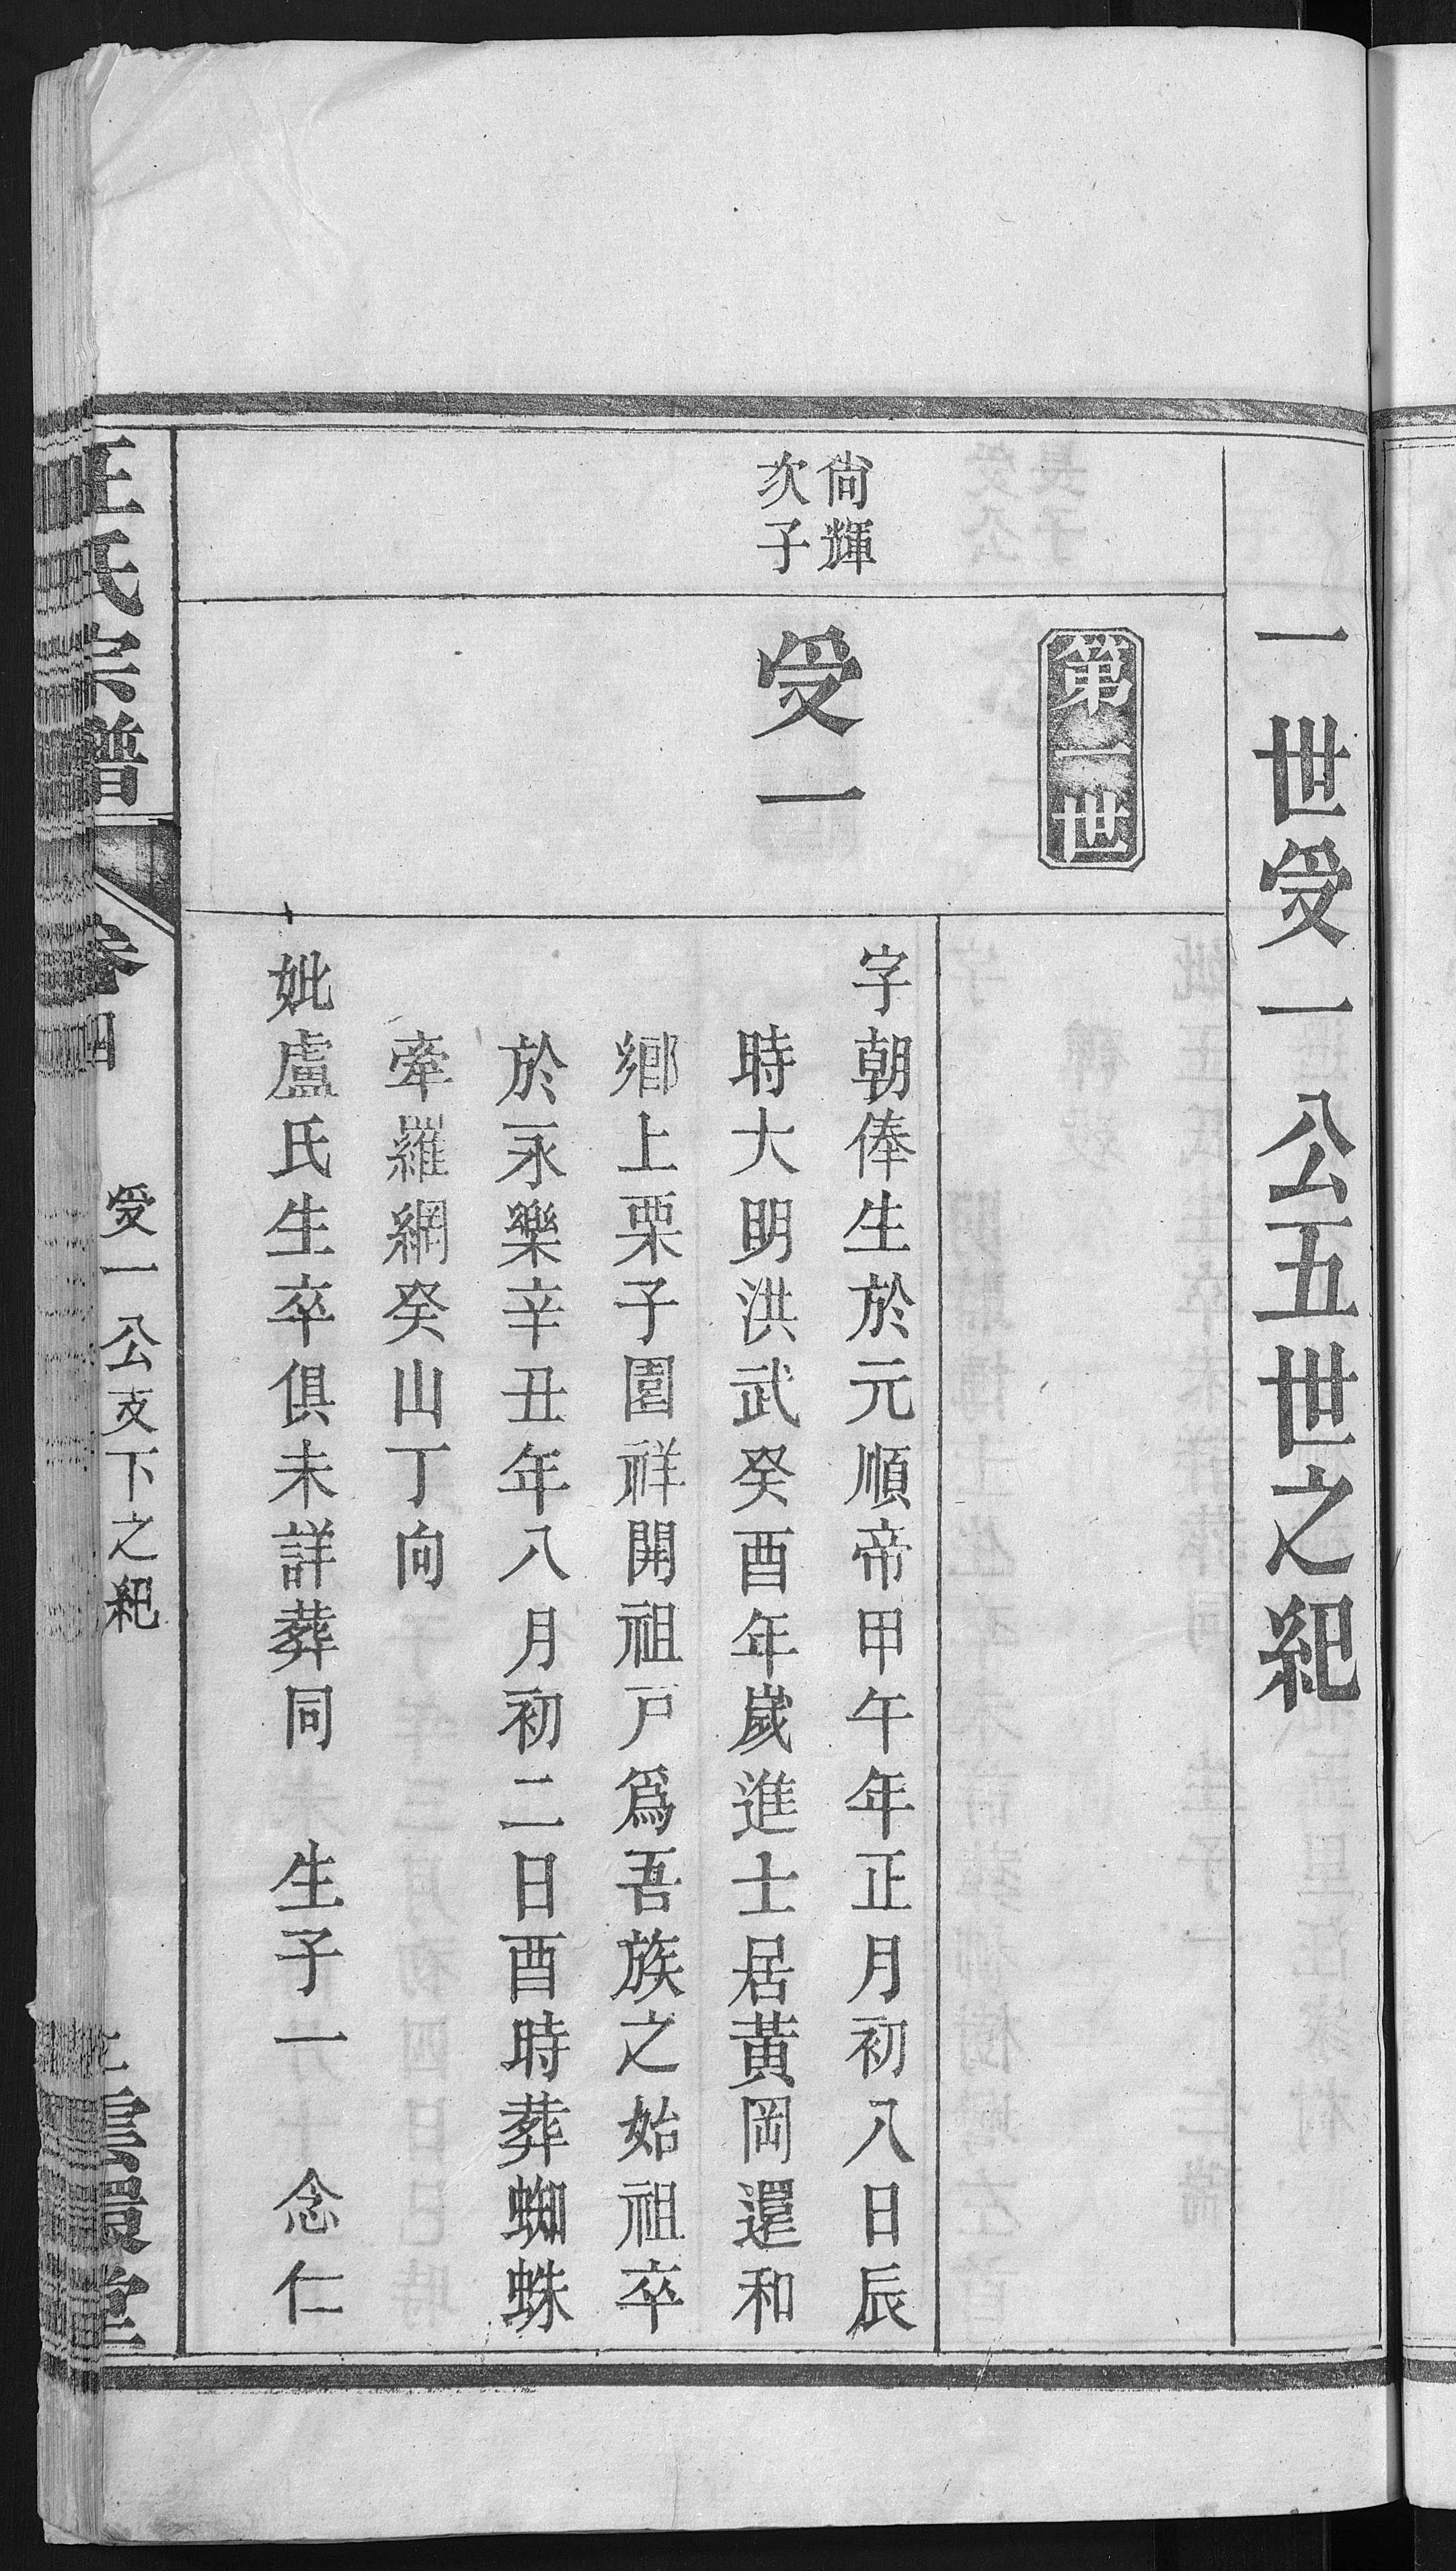 一世受一公五世之紀
第一世
尙輝
次子
受一
字朝俸生於元順帝甲午年正月初八日辰
時大明洪武癸酉年歲進士居黃岡還和
鄉上栗子園祥開祖戸爲吾族之始祖卒
於永樂辛丑年八月初二日酉時葬蜘蛛
牽羅網癸山丁向
妣盧氏生卒俱未詳葬同 生子一 念仁
王氏宗譜
卷四
受一公支下之紀